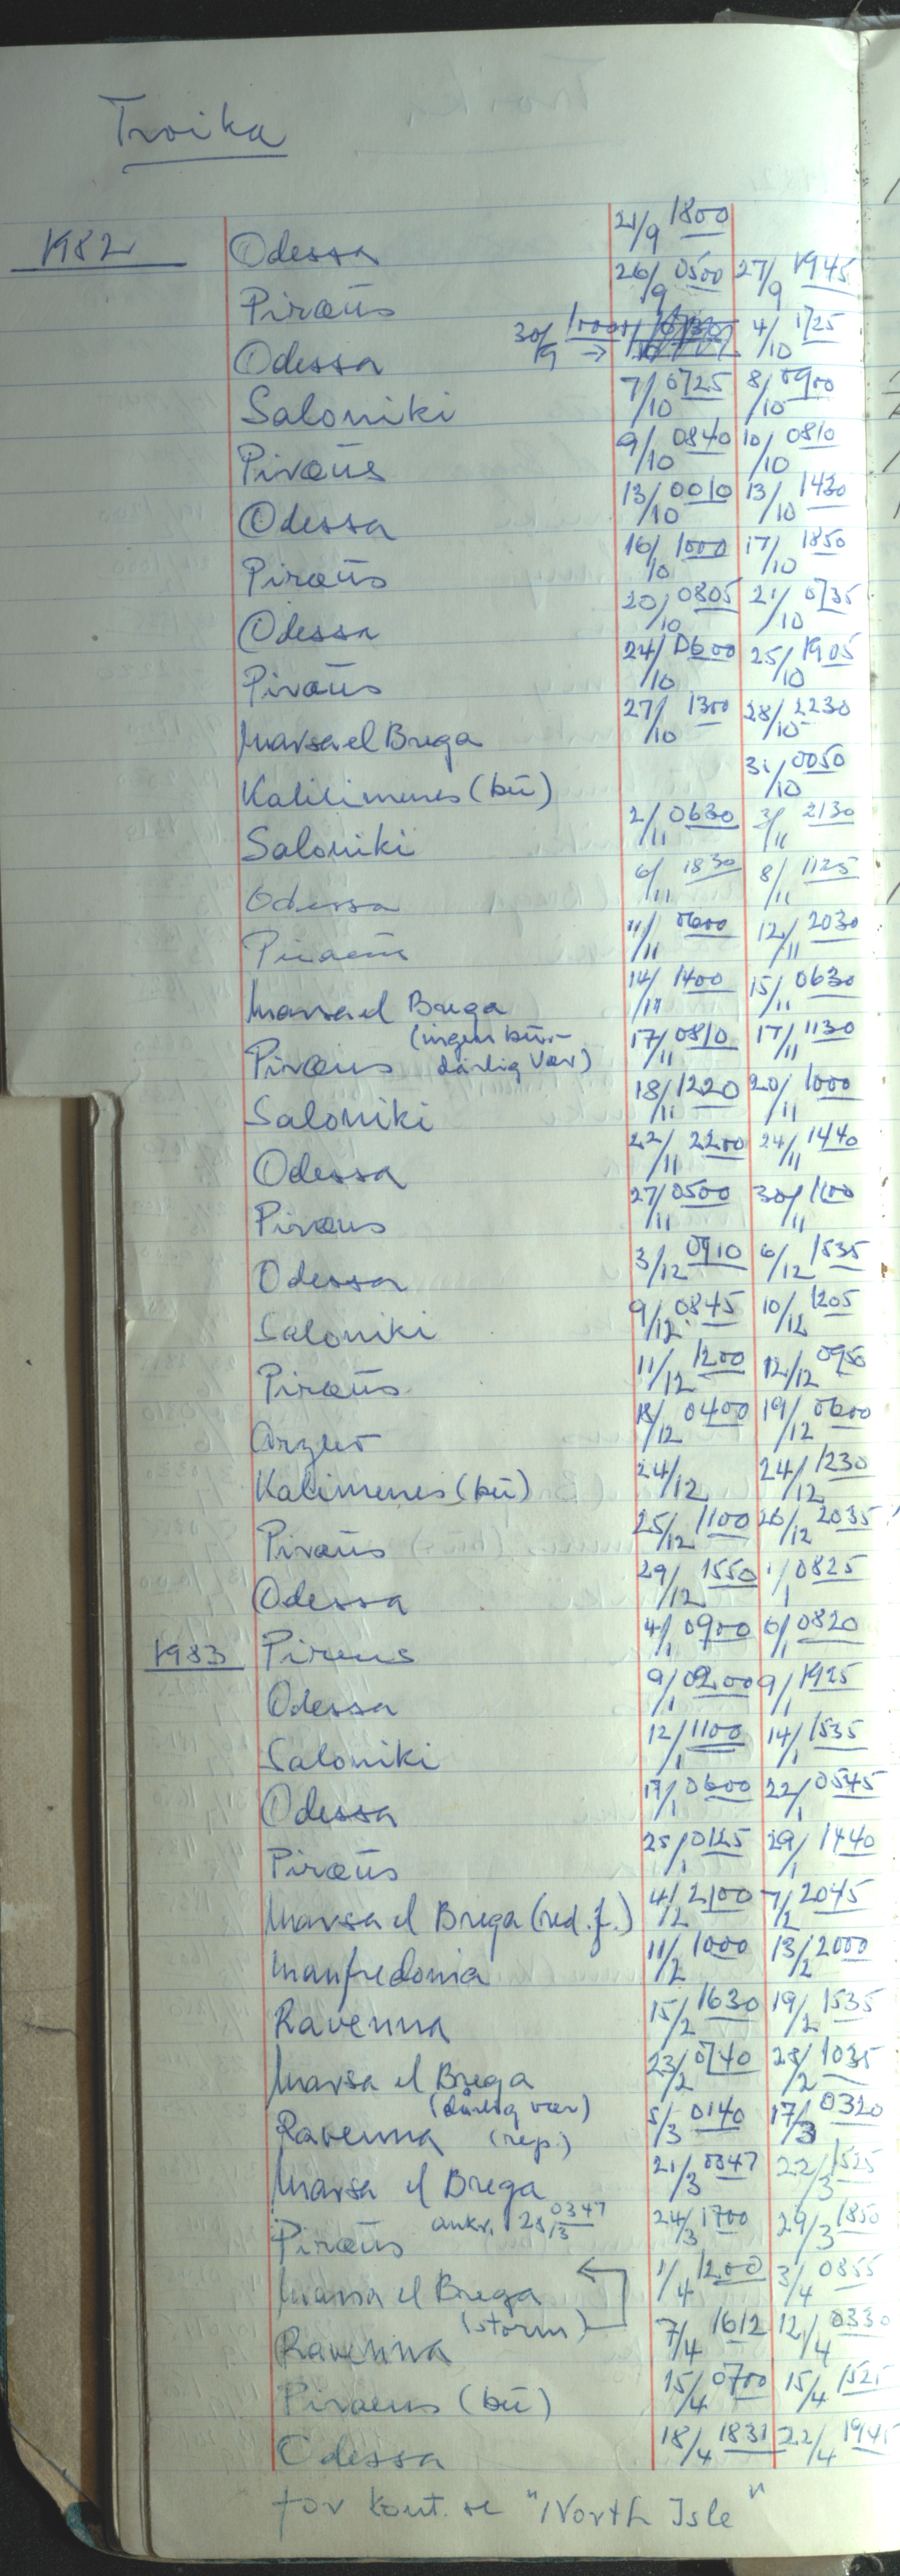 Troika
1982 Odessa 21/9 1800
Piræus 26/9 0500 27/9 1945
Odessa 30/9 → 4/10 1725
Saloniki 7/10 0725 8/10 0900
Piræus 9/10 0840 10/10 0810
Odessa 13/10 0010 13/10 1430
Piræus 16/10 1000 17/10 1850
Odessa 20/10 0805 21/10 0735
Piræus 24/10 0600 25/10 1905
Marsa el Brega 27/10 1300 28/10 2230
Kalilimenes (bü) 31/10 0050
Saloniki 2/11 0630 3/11 2130
Odessa 6/11 1830 8/11 1125
Piraeus 11/11 0600 12/11 2030
Marsa el Brega 14/11 1400 15/11 0630
(ingen bü.-
Piræus dårlig vær) 17/11 0810 17/11 1130
Saloniki 18/11 1220 20/11 1000
Odessa 22/11 2200 24/11 1440
Piræus 27/11 0500 30/11 1100
Odessa 3/12 0910 6/12 1535
Saloniki 9/12 0845 10/12 1205
Piræus 11/12 1200 12/12 0950
Arzew 18/12 0400 19/12 0600
Kalimenes (bü) 24/12 24/12 1230
Piræus 25/12 1100 26/12 2035
Odessa 29/12 1550 1/1 0825
1983 Piræus 4/1 0900 6/1 0820
Odessa 9/1 0200 9/1 1925
Saloniki 12/1 1100 14/1 1535
Odessa 17/1 0600 22/1 0545
Piræus 25/1 0125 29/1 1440
Marsa el Brega (red. f.) 4/2 2100 7/2 2045
Manfredonia 11/2 1000 13/2 2000
Ravenna 15/2 1630 19/2 1535
Marsa el Brega 23/2 0740 28/2 1035
(dårlig vær)
Ravenna (rep.) 5/3 0140 17/3 0320
Marsa el Brega 21/3 0347 22/3 1525
Piræus ankr. 23/3 0347 24/3 1700 29/3 1850
Marsa el Brega 1/4 1200 3/4 0855
Ravenna (storm) 7/4 1612 12/4 0330
Piraeus (bü) 15/4 0700 15/4 1525
Odessa 18/4 1831 22/4 1945
for kont. se "North Isle"